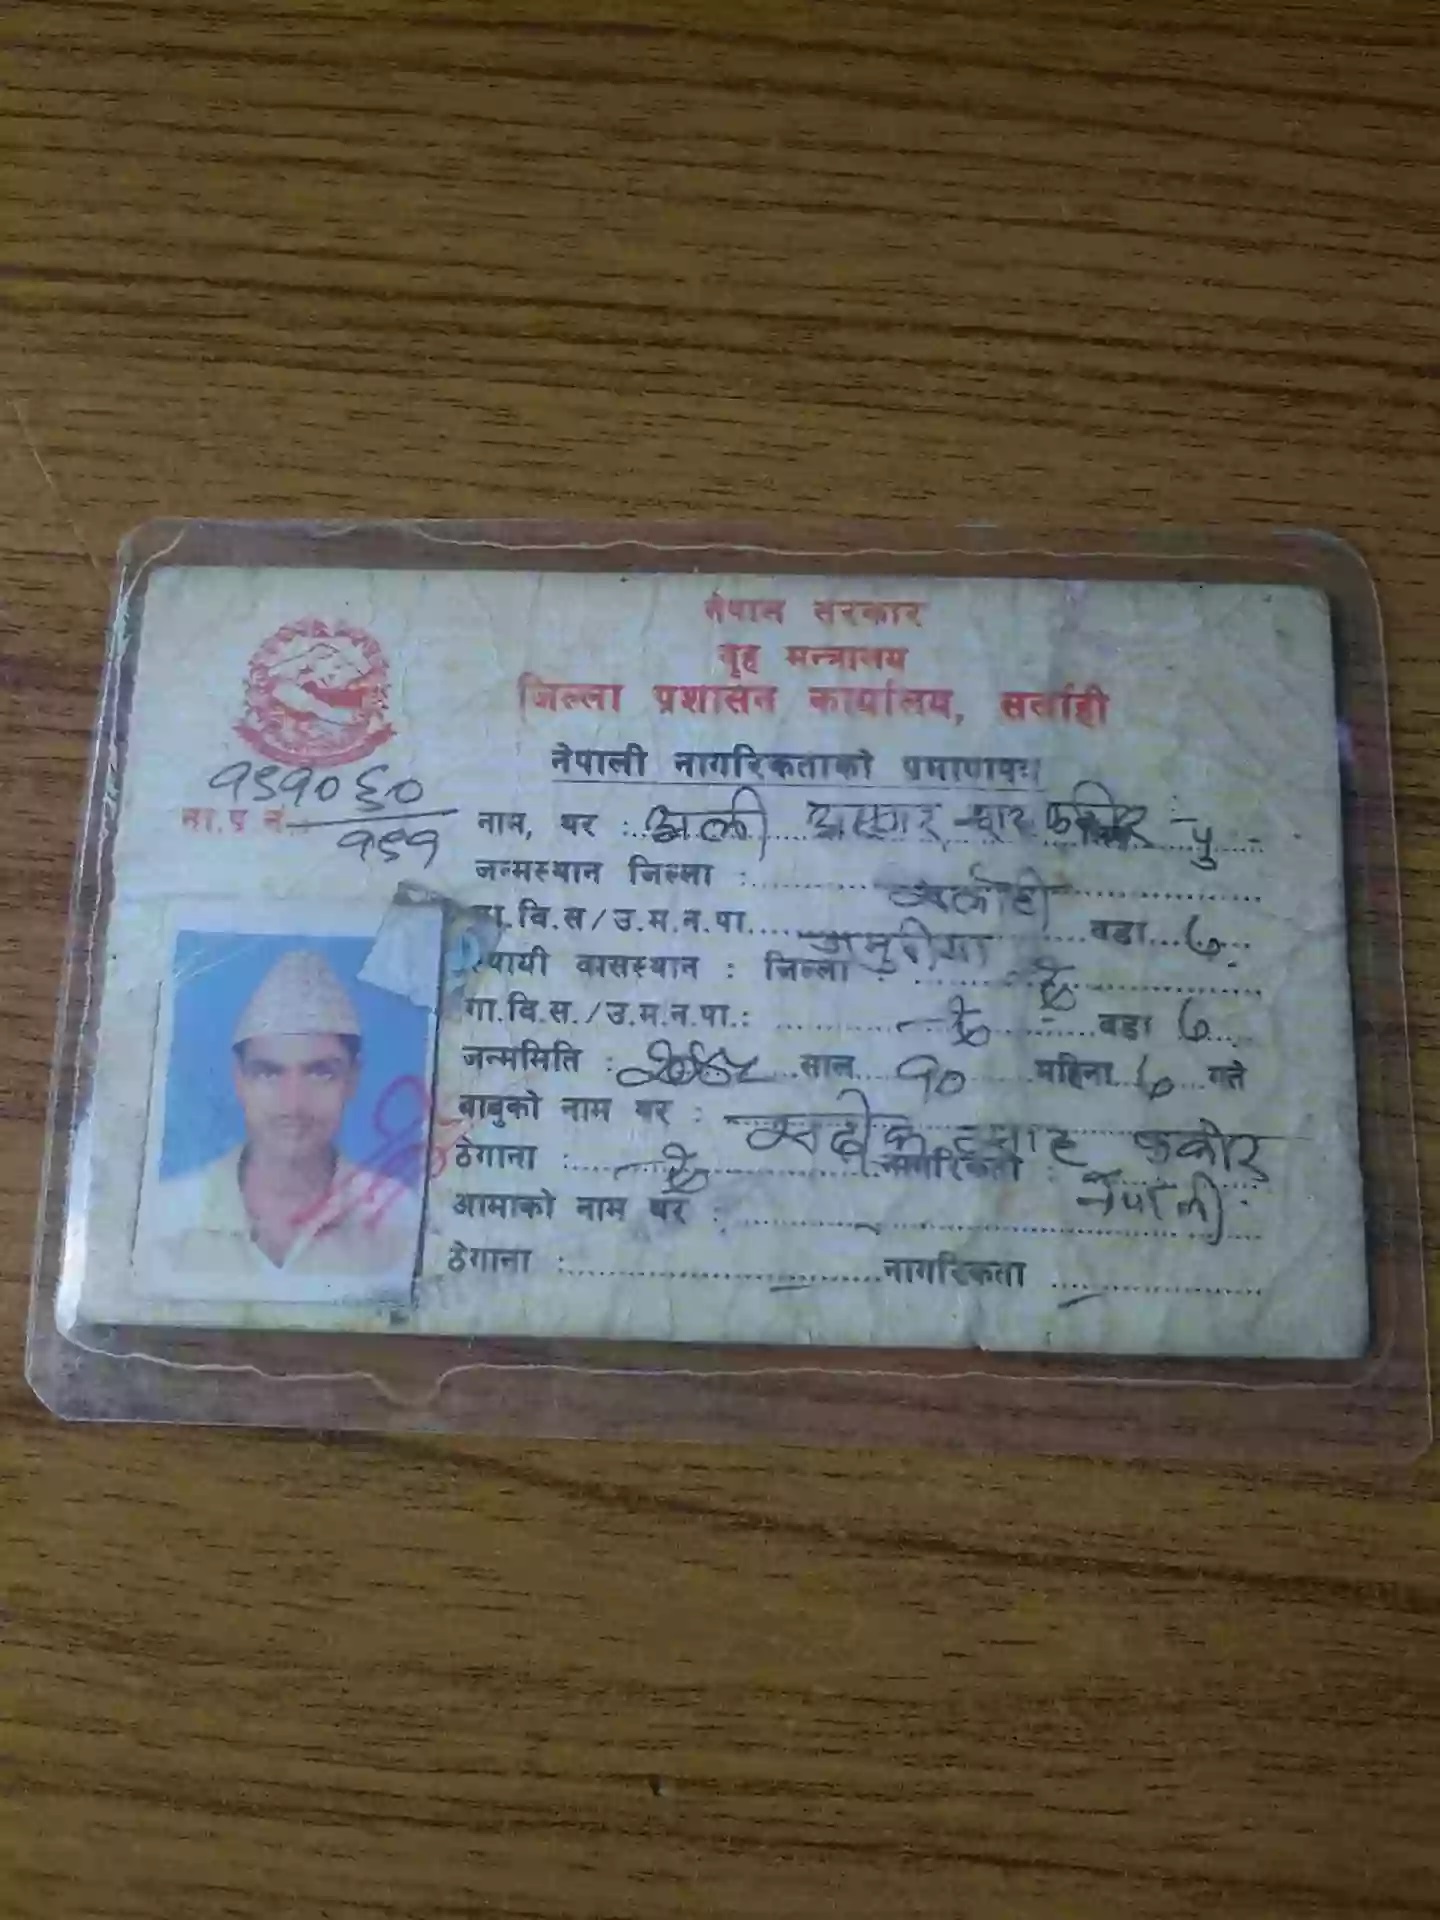 नेपाल सरकार
गृह मन्त्रालय
जिल्ला प्रशासन कार्यालय, सर्लाही
नेपाली नागरिकताको प्रमाणपत्र
ना.प्र.नं. १९१०६०/१९१
नाम, थर : अली शाह फकिर पु
जन्मस्थान जिल्ला : सर्लाही
गा.वि.स/उ.म.न.पा. वडा ७
स्थायी वासस्थान : जिल्ला : ऐ
गा.वि.स./उ.म.न.पा.: ऐ वडा ७
जन्ममिति : साल १० महिना ७ गते
बाबुको नाम थर : फकीर
ठेगाना : ऐ नागरिकता : नेपाली
आमाको नाम थर :
ठेगाना : नागरिकता